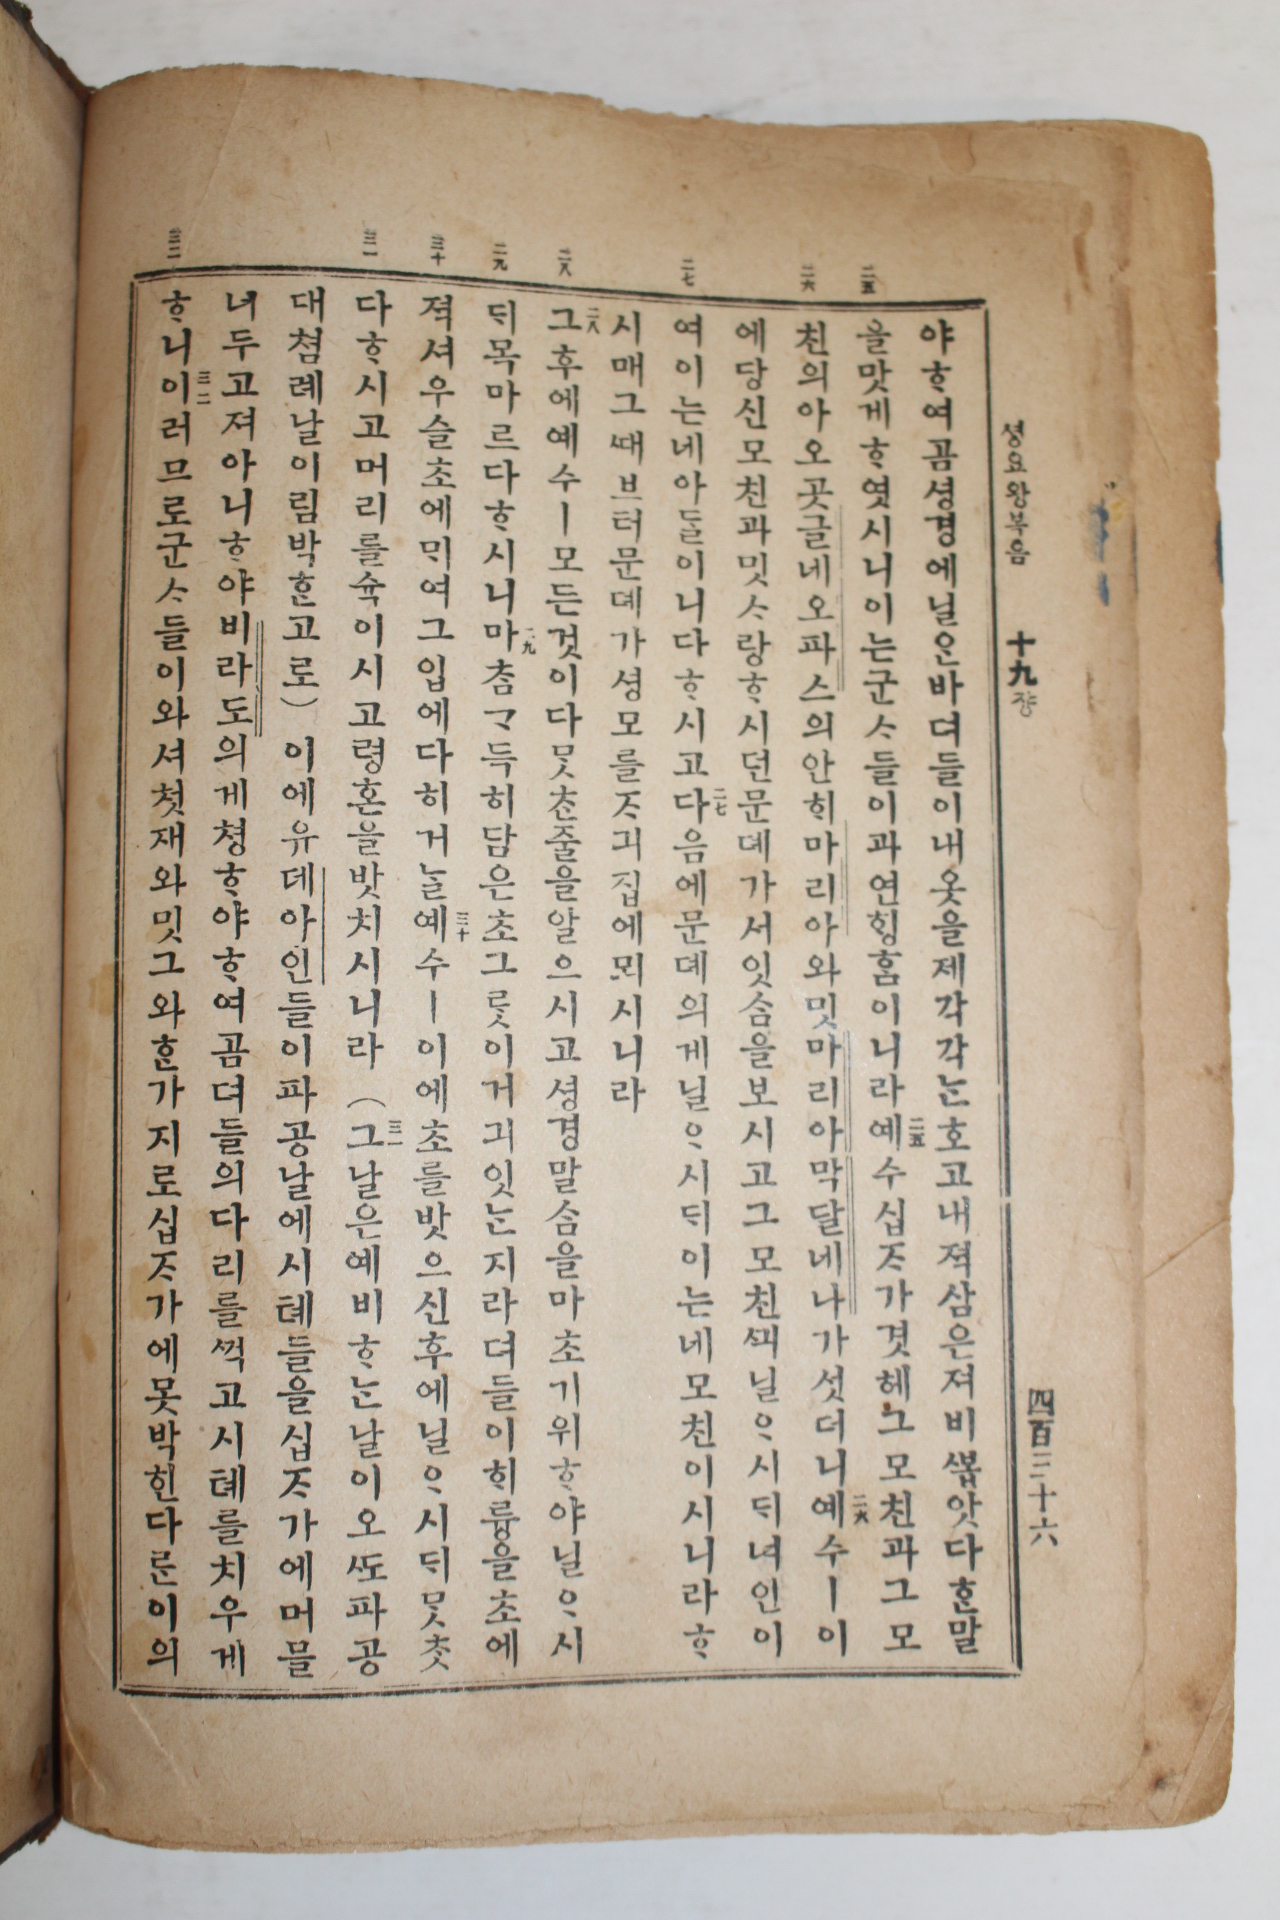 셩요왕복음 十九쟝 四百三十六
二五
二六
二七
二八
二九
三十
三一
三二
야ᄒᆞ여곰셩경에닐ᄋᆞᆫ바뎌들이내옷을제각각ᄂᆞᆫ호고내젹삼은져비ᄲᅩᆸ앗다ᄒᆞᆫ말
을맛게ᄒᆞ엿시니이는군ᄉᆞ들이과연ᄒᆡᆼᄒᆞᆷ이니라二五예수십ᄌᆞ가겻헤그모친과그모
친의아오곳글네오파스의안ᄒᆡ마리아와밋마리아막달네나가섯더니二六예수ㅣ이
에당신모친과밋ᄉᆞ랑ᄒᆞ시던문뎨가서잇ᄉᆞᆷ을보시고그모친ᄭᅴ닐ᄋᆞ시ᄃᆡ녀인이
여이는네아들이니다ᄒᆞ시고二七다음에문뎨의게닐ᄋᆞ시ᄃᆡ이는네모친이시니라ᄒᆞ
시매그ᄯᅢ브터문뎨가셩모를ᄌᆞ긔집에뫼시니라
二八그후에예수ㅣ모든것이다ᄆᆞᆺᄎᆞᆫ줄을알으시고셩경말ᄉᆞᆷ을마초기위ᄒᆞ야닐ᄋᆞ시
ᄃᆡ목마르다ᄒᆞ시니二九마ᄎᆞᆷᄀᆞ득히담은초그ᄅᆞᆺ이거긔잇ᄂᆞᆫ지라뎌들이ᄒᆡ륭을초에
젹셔우슬초에ᄆᆡ여그입에다히거ᄂᆞᆯ三十예수ㅣ이에초를밧으신후에닐ᄋᆞ시ᄃᆡᄆᆞᆺᄎᆞᆺ
다ᄒᆞ시고머리를슉이시고령혼을밧치시니라 (三一그날은예비ᄒᆞᄂᆞᆫ날이오ᄯᅩ파공
대쳠례날이림박ᄒᆞᆫ고로) 이에유데아인들이파공날에시톄들을십ᄌᆞ가에머믈
녀두고져아니ᄒᆞ야비라도의게쳥ᄒᆞ야ᄒᆞ여곰뎌들의다리를ᄭᅥᆨ고시톄를치우게
ᄒᆞ니三二이러므로군ᄉᆞ들이와셔첫재와밋그와ᄒᆞᆫ가지로십ᄌᆞ가에못박힌다ᄅᆞᆫ이의